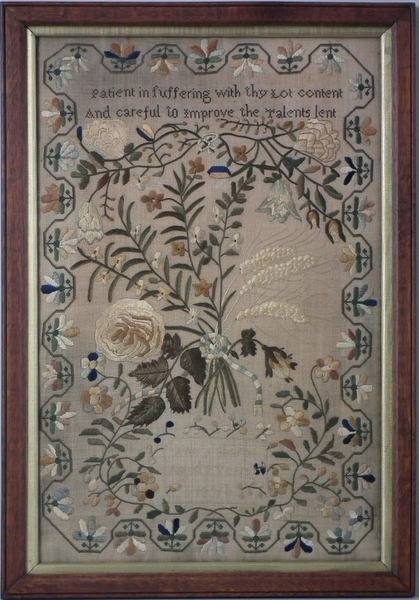 Patient in suffering with thy Lot content
And careful to improve the Talents lent